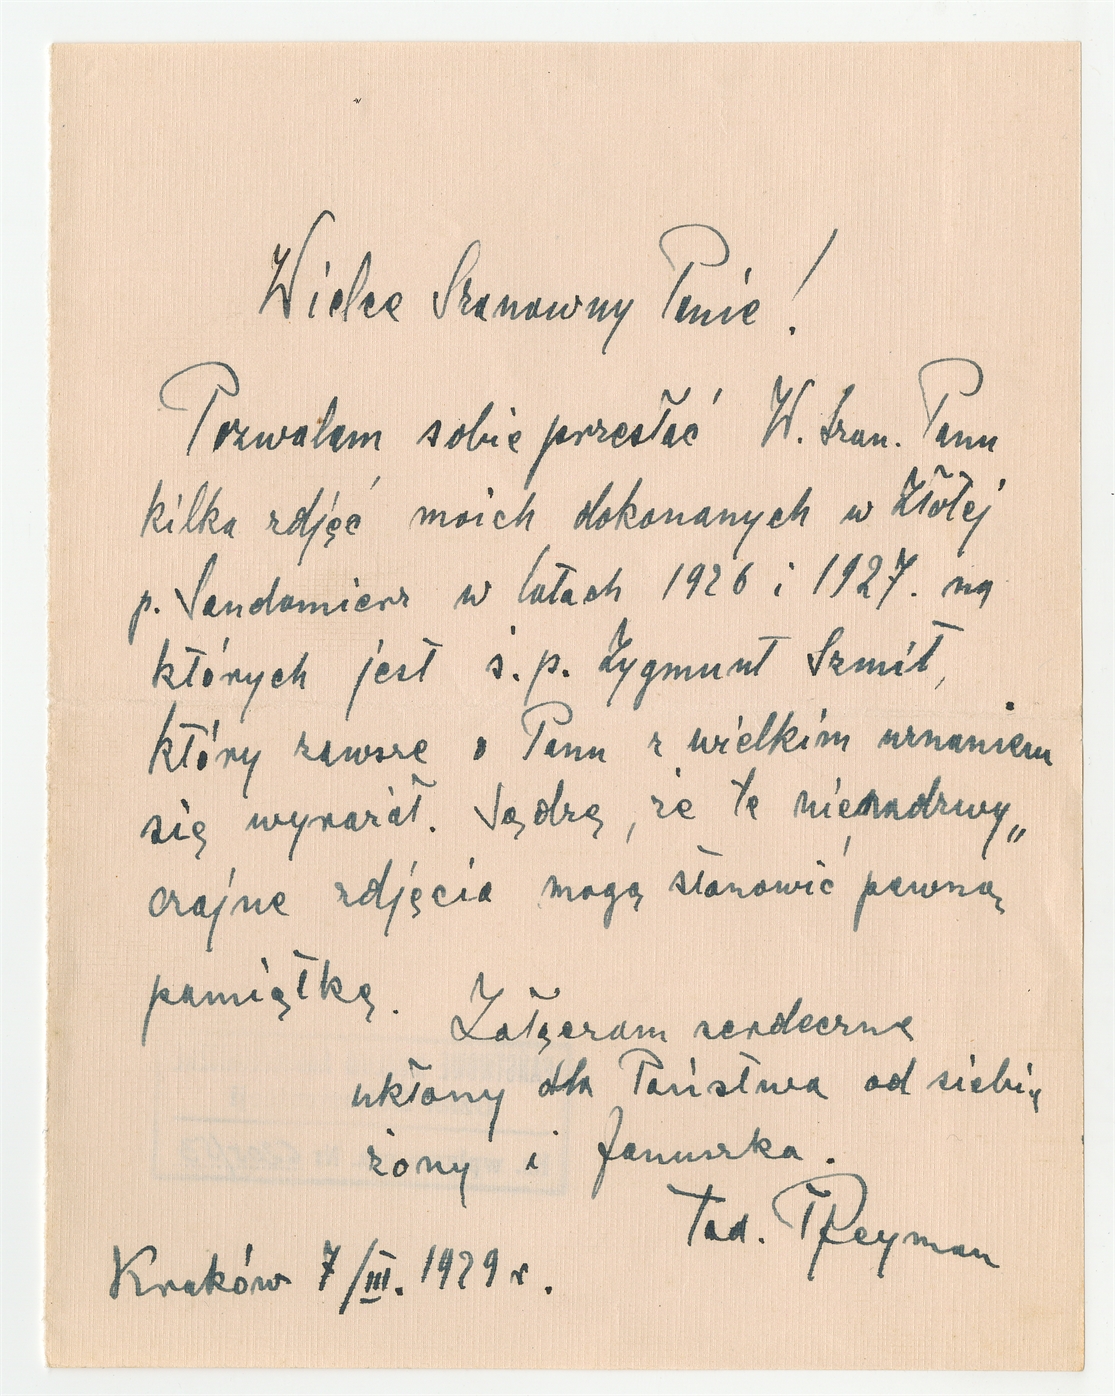 Wielce Szanowny Panie!
Pozwalam sobie przesłać W. Szan. Panu
kilka zdjęć moich dokonanych w Złotej
p. Sandomierz w latach 1926 i 1927. na
których jest ś.p. Zygmunt Szmit,
który zawsze o Panu z wielkim uznaniem
się wyrażał. Sądzę, że te nienadzwy„
czajne zdjęcia mogą stanowić pewną
pamiątkę.
Załączam serdeczne
ukłony dla Państwa od siebie
żony i Januszka.
Tad. Reyman
Kraków 7/III. 1929 r.